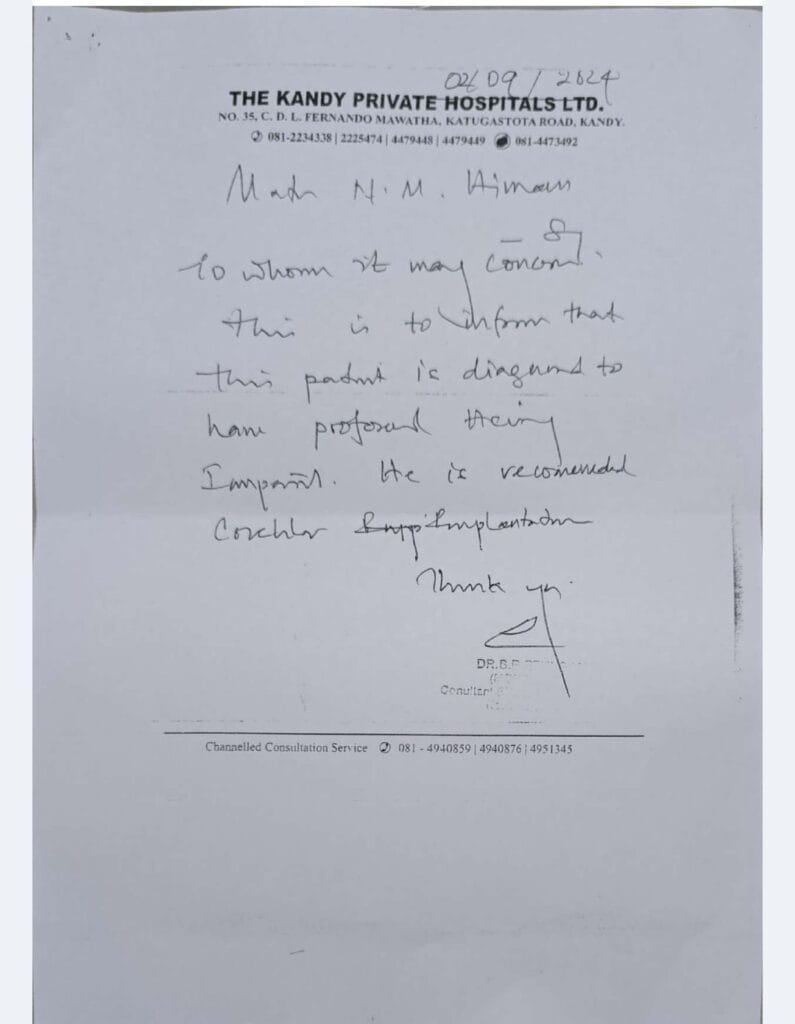 02/09/2024
THE KANDY PRIVATE HOSPITALS LTD.
NO. 35, C. D. L. FERNANDO MAWATHA, KATUGASTOTA ROAD, KANDY.
081-2234338 | 2225474 | 4479448 | 4479449 081-4473492
N. M.
To whom it may concern.
This is to inform that
this patient is diagnosed to
have profound Hearing
He is recomended
Implantation
Thank you.
DR.B.
Channelled Consultation Service 081 - 4940859 | 4940876 | 4951345